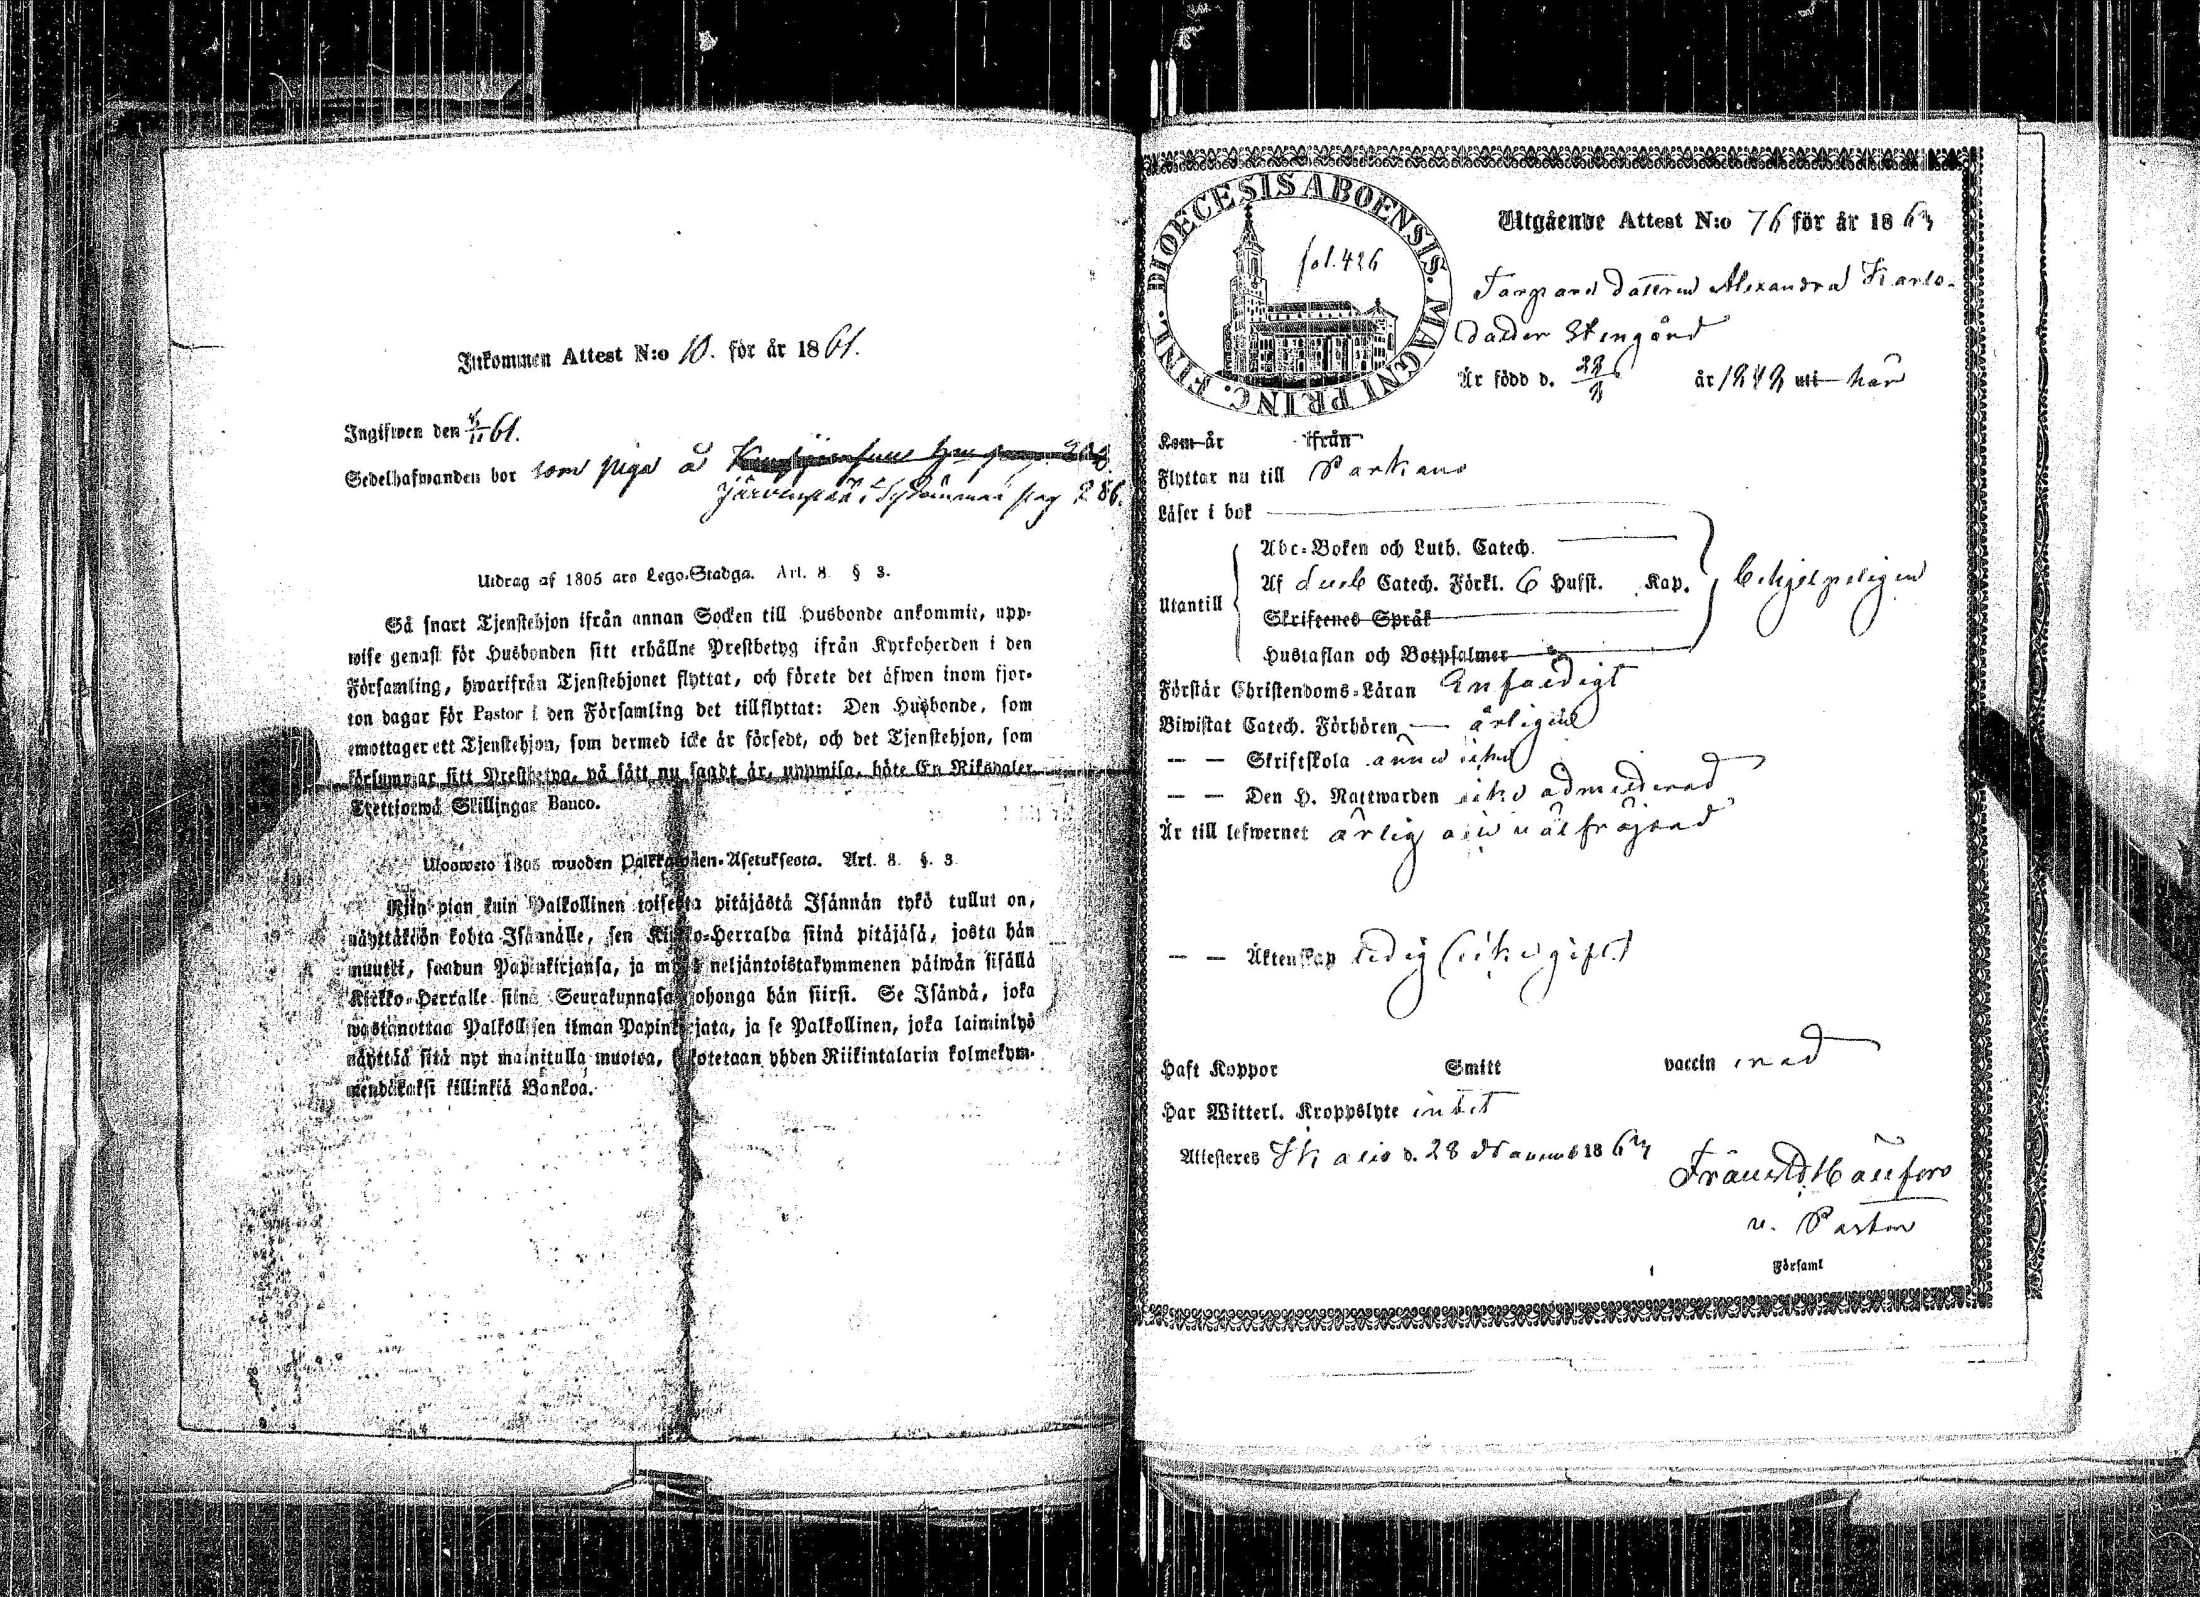 Inkommen Attest N:o 10. för år 1861.
Ingifwen den 61.
Sedelhafwanden bor som piga å
Järvenpää i Sydänmaa pag 286.
Utdrag af 1805 ars Lego-Stadga. Art. 8 § 3.
Så snart Tjenstehjon ifrån annan Socken till Husbonde ankommit, upp-
wise genast för Husbonden sitt erhållne Prestbetyg ifrån Kyrkoherden i den
Församling, hwarifrån Tjenstehjonet flyttat, och förete det äfwen inom fjor-
ton dagar för Pastor i den Församling det tillflyttat: Den Husbonde, som
emottager ett Tjenstehjon, som dermed icke är försedt, och det Tjenstehjon, som
försummar sitt Prestbetyg, på sätt nu sagdt är, uppwisa, böte En Riksdaler
Trettiotwå Skillingar Banco.
Ulosweto 1805 wuoden Palkkawäen-Asetuksesta. Art. 8. §. 3
Niin pian kuin Palkollinen toisesta pitäjästä Isännän tykö tullut on,
näyttäköön kohta Isännälle, sen Kirkko-Herralda siinä pitäjäsä, josta hän
muutti, saadun Papinkirjansa, ja myös neljäntoistakymmenen päiwän sisällä
Kirkko-Herralle siinä Seurakunnasa johonga hän siirsi. Se Isändä, joka
wastanottaa Palkollisen ilman Papinkirjata, ja se Palkollinen, joka laiminlyö
näyttää sitä nyt mainitulla muotoa, sakotetaan yhden Riikintalarin kolmekym-
mendäkaksi killinkiä Bankoa.
DIOECESIS ABOENSIS. MAGNI PRINC. FINL.
fol. 426
Utgående Attest N:o 76 för år 1863
Torpare dottren Alexandra Karls-
dotter Stengård
Är född d. år 1848 uti här
Kom år ifrån
Flyttar nu till Parkano
Läser i bok
Abc-Boken och Luth. Catech.
Af Catech. Förkl. 6 Hufst. Kap.
Utantill
behjelpeligen
Skriftenes Språk
Hustaflan och Botpsalmer
Förstår Christendoms-Läran Enfaldigt
Biwistat Catech. Förhören årligen
— — Skriftskola ännu icke
— — Den H. Nattwarden icke admitterad
Är till lefwernet ärlig och wälfräjdad
— — Äktenskap ledig (icke gift)
Haft Koppor Smitt vaccin erad
Har Witterl. Kroppslyte intet
Attesteres Ikalis d. 28 Novemb 1863
v. Pastor
Församl